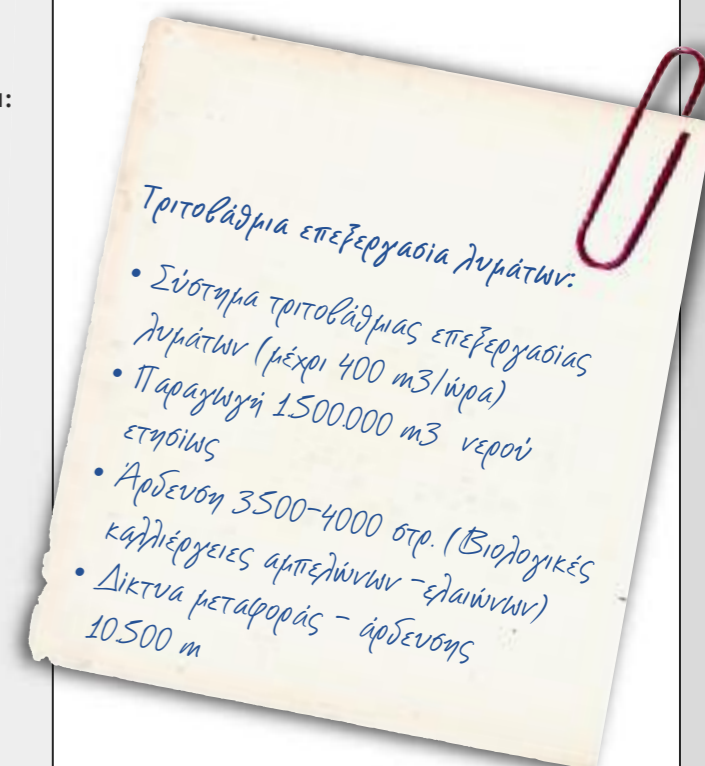 ι:
Τριτοβάθμια επεξεργασία λυμάτων:
• Σύστημα τριτοβάθμιας επεξεργασίας
λυμάτων (μέχρι 400 m3/ώρα)
• Παραγωγή 1.500.000 m3 νερού
ετησίως
• Άρδευση 3500-4000 στρ. (Βιολογικές
καλλιέργειες αμπελώνων -ελαιώνων)
• Δίκτυα μεταφοράς - άρδευσης
10.500 m